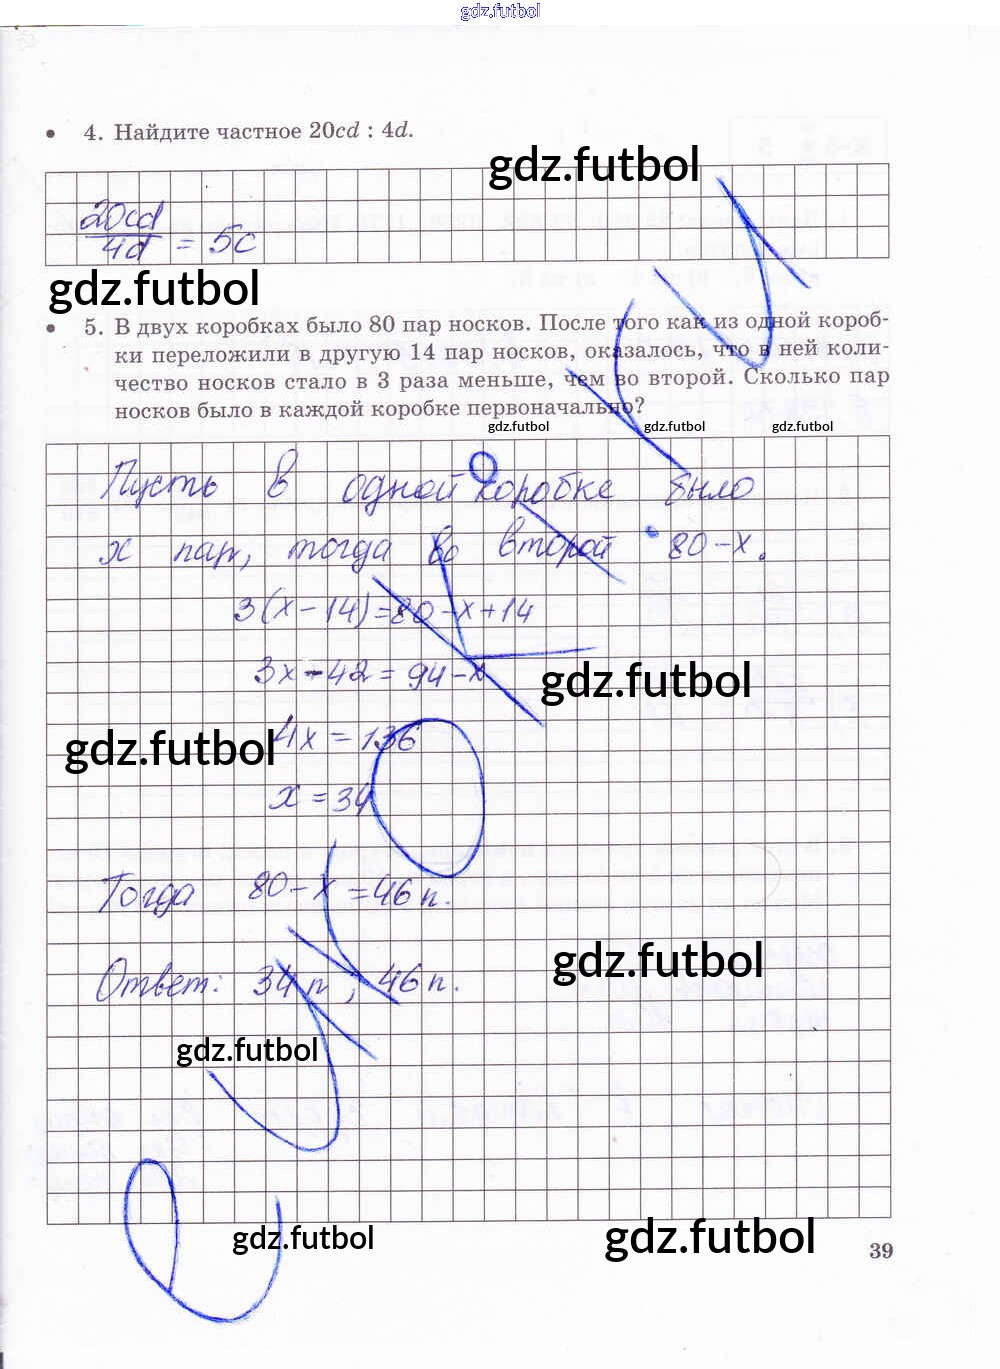 gdz.futbol
• 4. Найдите частное 20cd : 4d.
gdz.futbol
20cd/4d = 5c
gdz.futbol
• 5. В двух коробках было 80 пар носков. После того как из одной короб-
ки переложили в другую 14 пар носков, оказалось, что в ней коли-
чество носков стало в 3 раза меньше, чем во второй. Сколько пар
носков было в каждой коробке первоначально?
gdz.futbol gdz.futbol gdz.futbol
Пусть в одной коробке было
x пар, тогда во второй 80-x.
3(x-14)=80-x+14
3x-42=94-x
gdz.futbol
4x=136
gdz.futbol
x=34
Тогда 80-x=46 п.
gdz.futbol
Ответ: 34 п ; 46 п.
gdz.futbol
gdz.futbol gdz.futbol
39